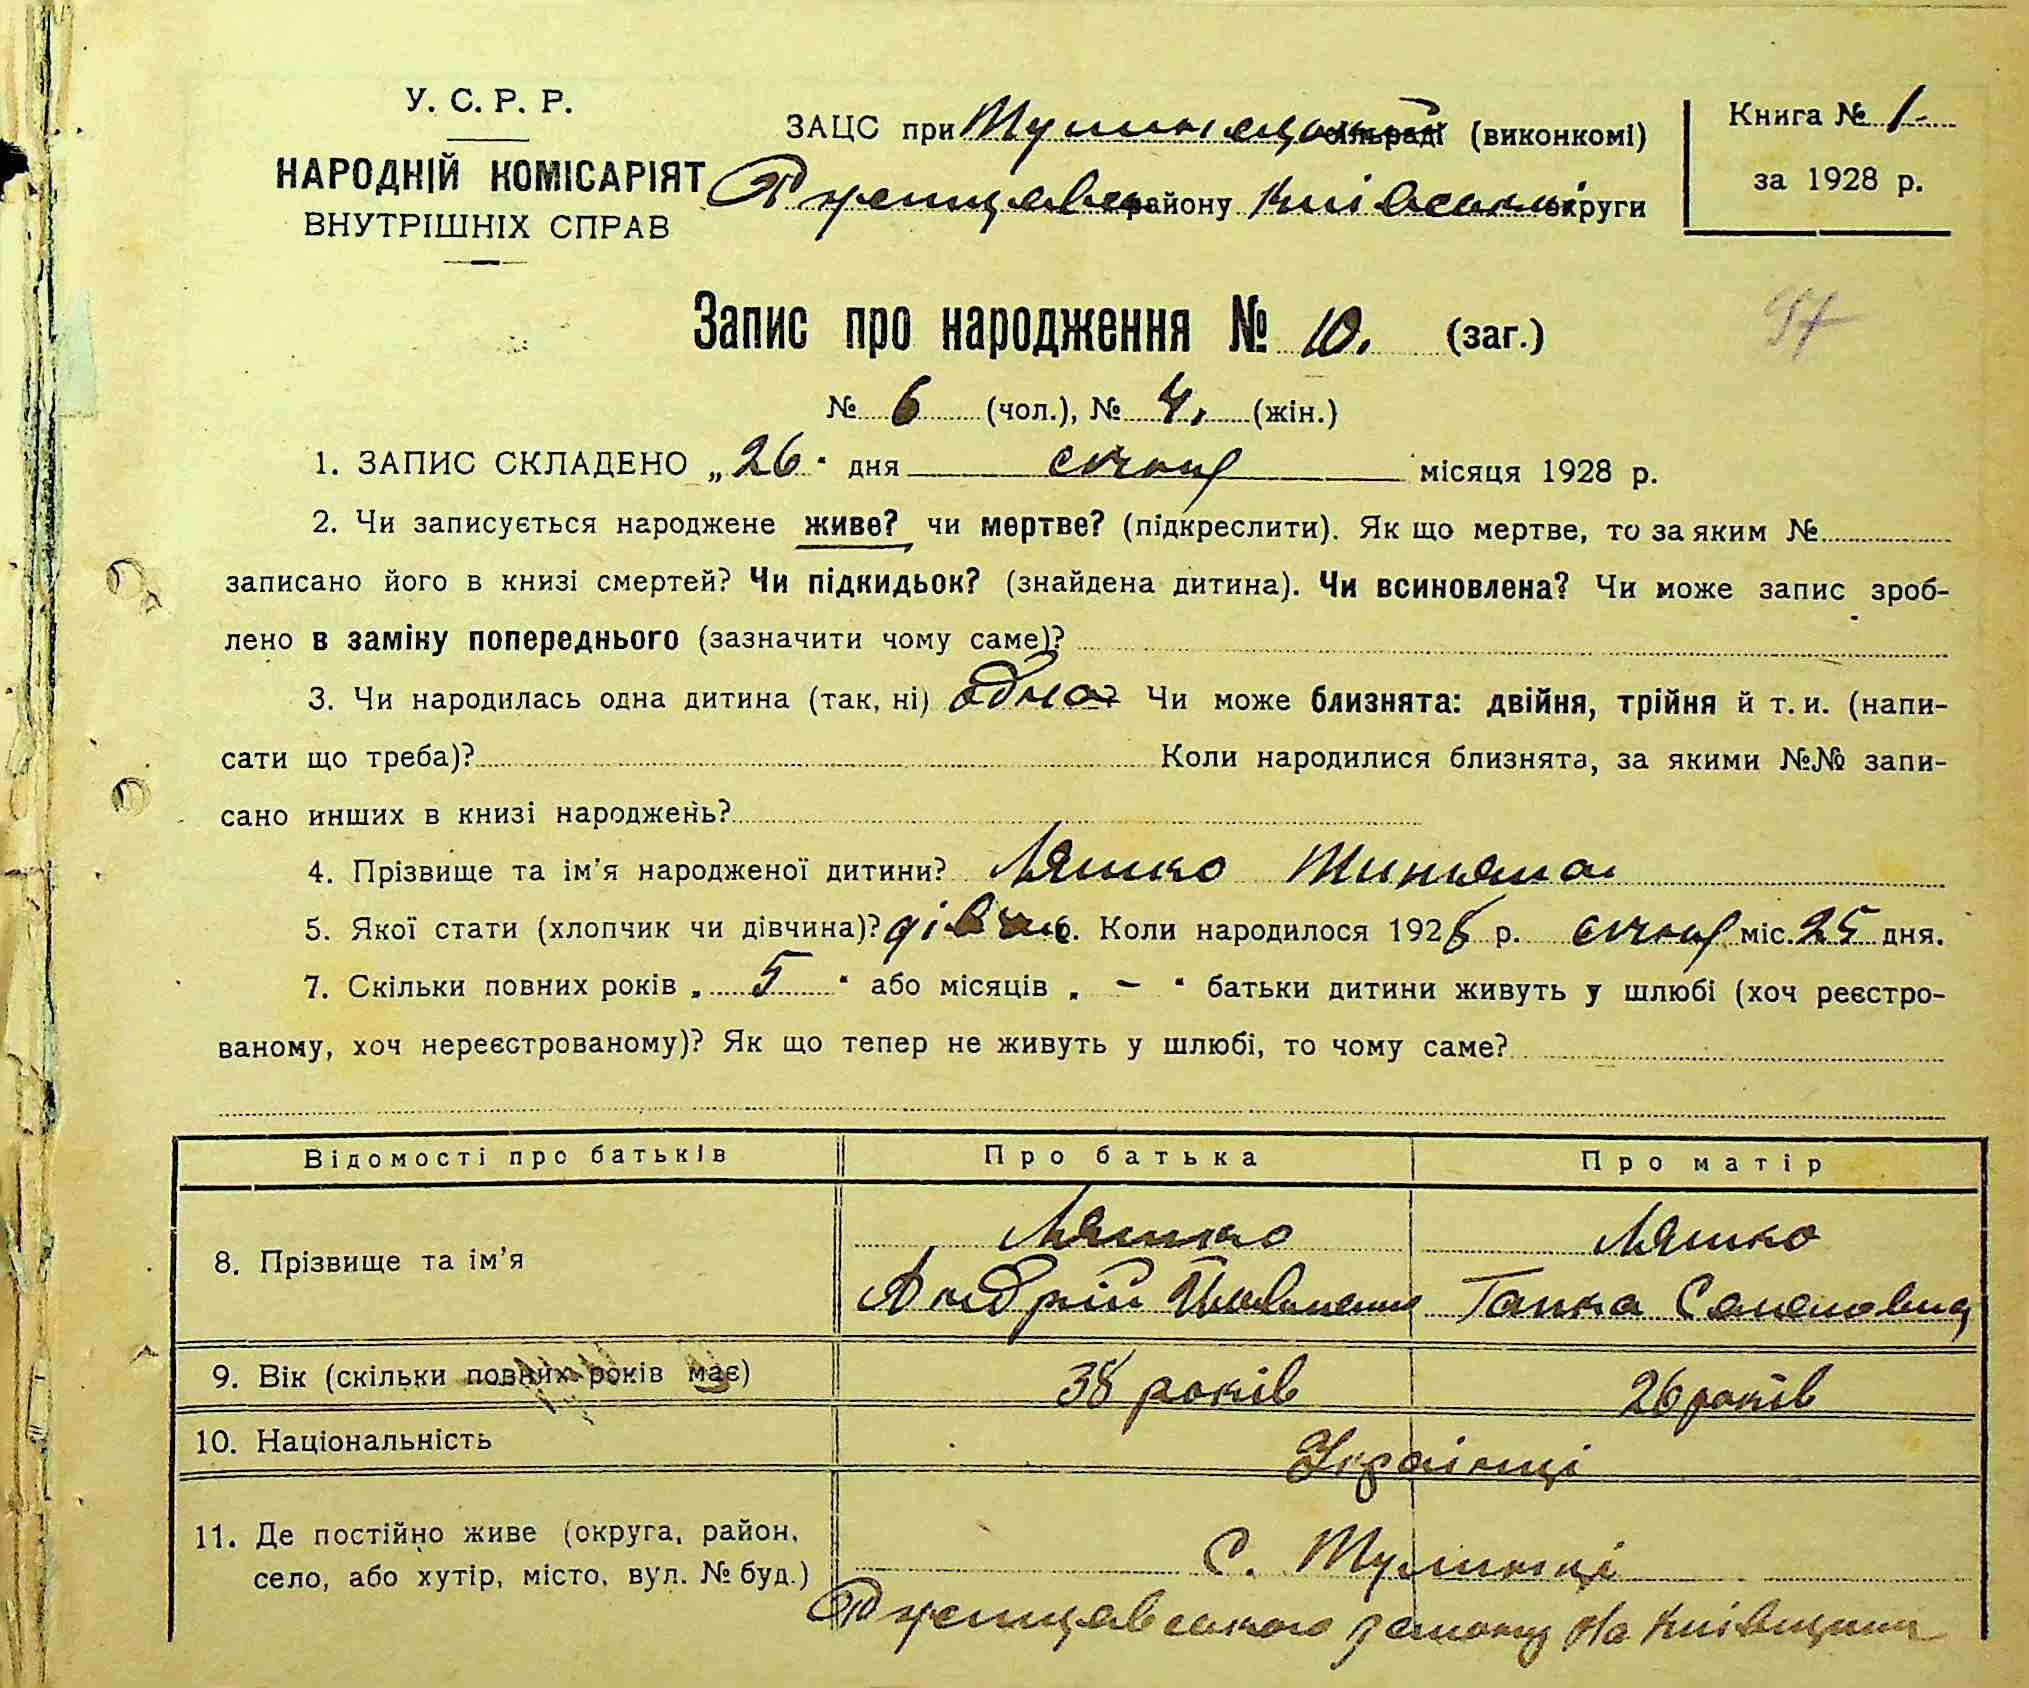 У. С. Р. Р.
НАРОДНІЙ КОМІСАРІЯТ
ВНУТРІШНІХ СПРАВ
ЗАЦС при сільраді (виконкомі)
району Київської округи
Книга № 1
за 1928 р.
Запис про народження № 10. (заг.)
97
№ 6 (чол.), № 4. (жін.)
1. ЗАПИС СКЛАДЕНО „26" дня січня місяця 1928 р.
2. Чи записується народжене живе? чи мертве? (підкреслити). Як що мертве, то за яким №
записано його в книзі смертей? Чи підкидьок? (знайдена дитина). Чи всиновлена? Чи може запис зроб-
лено в заміну попереднього (зазначити чому саме)?
3. Чи народилась одна дитина (так, ні) одна Чи може близнята: двійня, трійня й т. и. (напи-
сати що треба)? Коли народилися близнята, за якими №№ запи-
сано инших в книзі народжень?
4. Прізвище та ім'я народженої дитини? Ляшко Титяна
5. Якої стати (хлопчик чи дівчина)? дівчин 6. Коли народилося 1928 р. січня міс. 25 дня.
7. Скільки повних років „ 5 " або місяців „ – " батьки дитини живуть у шлюбі (хоч реєстро-
ваному, хоч нереєстрованому)? Як що тепер не живуть у шлюбі, то чому саме?
Відомості про батьків Про батька Про матір
8. Прізвище та ім'я Ляшко Ляшко
Андрій Ганка Семеновна
9. Вік (скільки повних років має) 38 років 26 років
10. Національність Українці
11. Де постійно живе (округа, район, село, або хутір, місто, вул. № буд.) С. Тулинці
Ржищевського району на Київщині